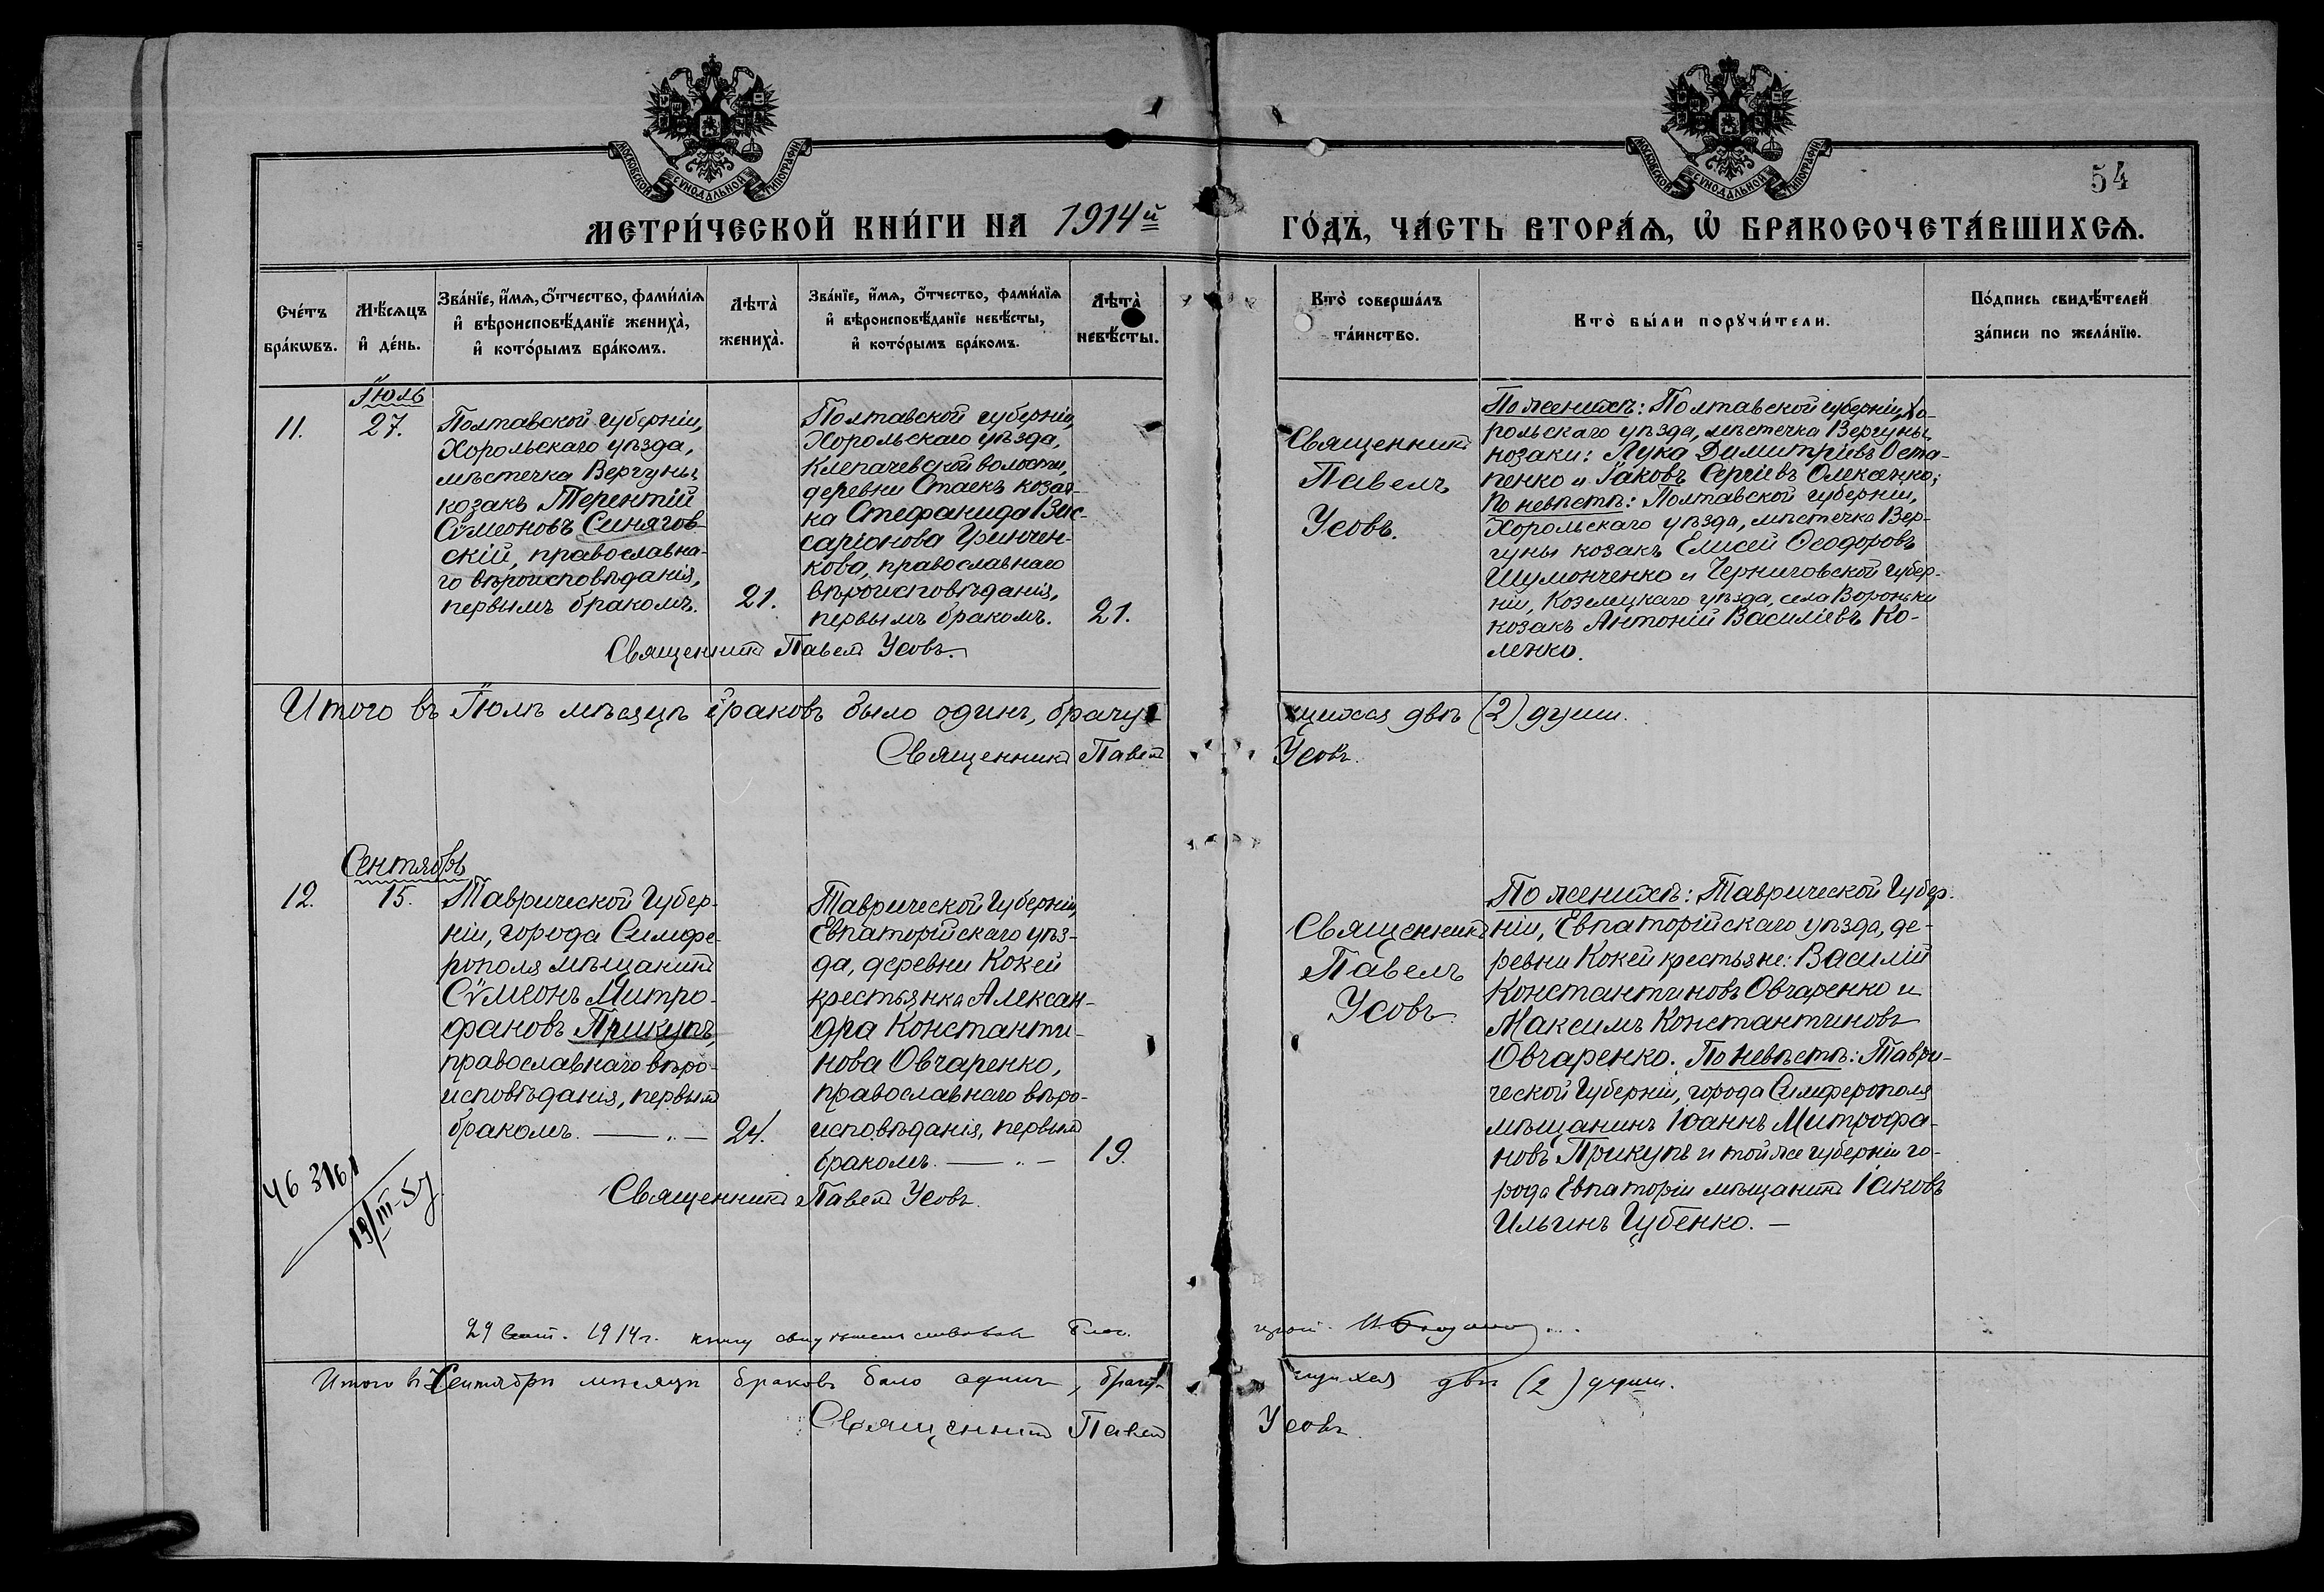 МОСКОВСКОЙ СѴНОДАЛЬНОЙ ТИПОГРАФІИ
МОСКОВСКОЙ СѴНОДАЛЬНОЙ ТИПОГРАФІИ
54
МЕТРИ́ЧЕСКОЙ КНИ́ГИ НА 1914й ГО́ДЪ, ЧА́СТЬ ВТОРА́Ѧ, Ѽ БРАКОСОЧЕТА́ВШИХСѦ.
Сче́тъ
бра́кѡвъ.
Мѣ́сѧцъ
и҆ де́нь.
Зва́нїе, и҆́мѧ, ѻ҆́тчество, фами́лїѧ
и҆ вѣроисповѣ́данїе жениха̀,
и҆ кото́рымъ бра́комъ.
Лѣта̀
жениха̀.
Зва́нїе, и҆́мѧ, ѻ҆́тчество, фами́лїѧ
и҆ вѣроисповѣ́данїе невѣ́сты,
и҆ кото́рымъ бра́комъ.
Лѣта̀
невѣ́сты.
Кто̀ соверша́лъ
та́инство.
Кто̀ бы́ли порꙋчи́тели.
По́дпись свидѣ́телей
за́писи по жела́нїю.
Іюль
11.
27.
Полтавской губерніи,
Хорольскаго уѣзда,
мѣстечка Вергуны
козакъ Терентій
Сѵмеоновъ Синягов-
скій, православна-
го вѣроисповѣданія,
первымъ бракомъ.
21.
Полтавской губерніи,
Хорольскаго уѣзда,
Клепачевской волости,
деревни Стаекъ козач-
ка Стефанида Вис-
саріонова Гринчен-
кова, православнаго
вѣроисповѣданія,
первымъ бракомъ.
21.
Священникъ Павелъ Усовъ.
Священникъ
Павелъ
Усовъ.
По женихѣ: Полтавской губерніи, Хо-
рольскаго уѣзда, мѣстечка Вергуны
козаки: Лука Димитріевъ Оста-
пенко и Іаковъ Сергіевъ Олекенко;
по невѣстѣ: Полтавской губерніи,
Хорольскаго уѣзда, мѣстечка Вер-
гуны козакъ Елисей Ѳеодоровъ
Шумонченко и Черниговской губер-
ніи, Козелецкаго уѣзда, села Вороньки
козакъ Антоній Василіевъ Ко-
ленко.
Итого въ Іюлѣ мѣсяцѣ браковъ было одинъ, брачу-
щихся двѣ (2) души.
Священникъ Павелъ Усовъ.
Сентябрь
12.
15.
Таврической Губер-
ніи, города Симфе-
рополя мѣщанинъ
Сѵмеонъ Митро-
фановъ Прикупъ,
православнаго вѣро-
исповѣданія, первымъ
бракомъ. — „ —
24.
Таврической Губерніи,
Евпаторійскаго уѣз-
да, деревни Кокей
крестьянка Алексан-
дра Константи-
нова Овчаренко,
православнаго вѣро-
исповѣданія, первымъ
бракомъ. — „ —
19.
Священникъ Павелъ Усовъ.
Священникъ
Павелъ
Усовъ.
По женихѣ: Таврической Губер-
ніи, Евпаторійскаго уѣзда, де-
ревни Кокей крестьяне: Василій
Константиновъ Овчаренко и
Максимъ Константиновъ
Овчаренко. По невѣстѣ: Таври-
ческой Губерніи, города Симферополя
мѣщанинъ Іоаннъ Митрофа-
новъ Прикупъ и той же губерніи го-
рода Евпаторіи мѣщанинъ Іаковъ
Ильинъ Губенко. —
Ч6 3161
19/III-57
29 Сент. 1914 г. книгу свидѣтельствовалъ Благ.
Итого въ Сентябрѣ мѣсяцѣ браковъ было одинъ, брачу-
щихся двѣ (2) души.
Священникъ Павелъ Усовъ.